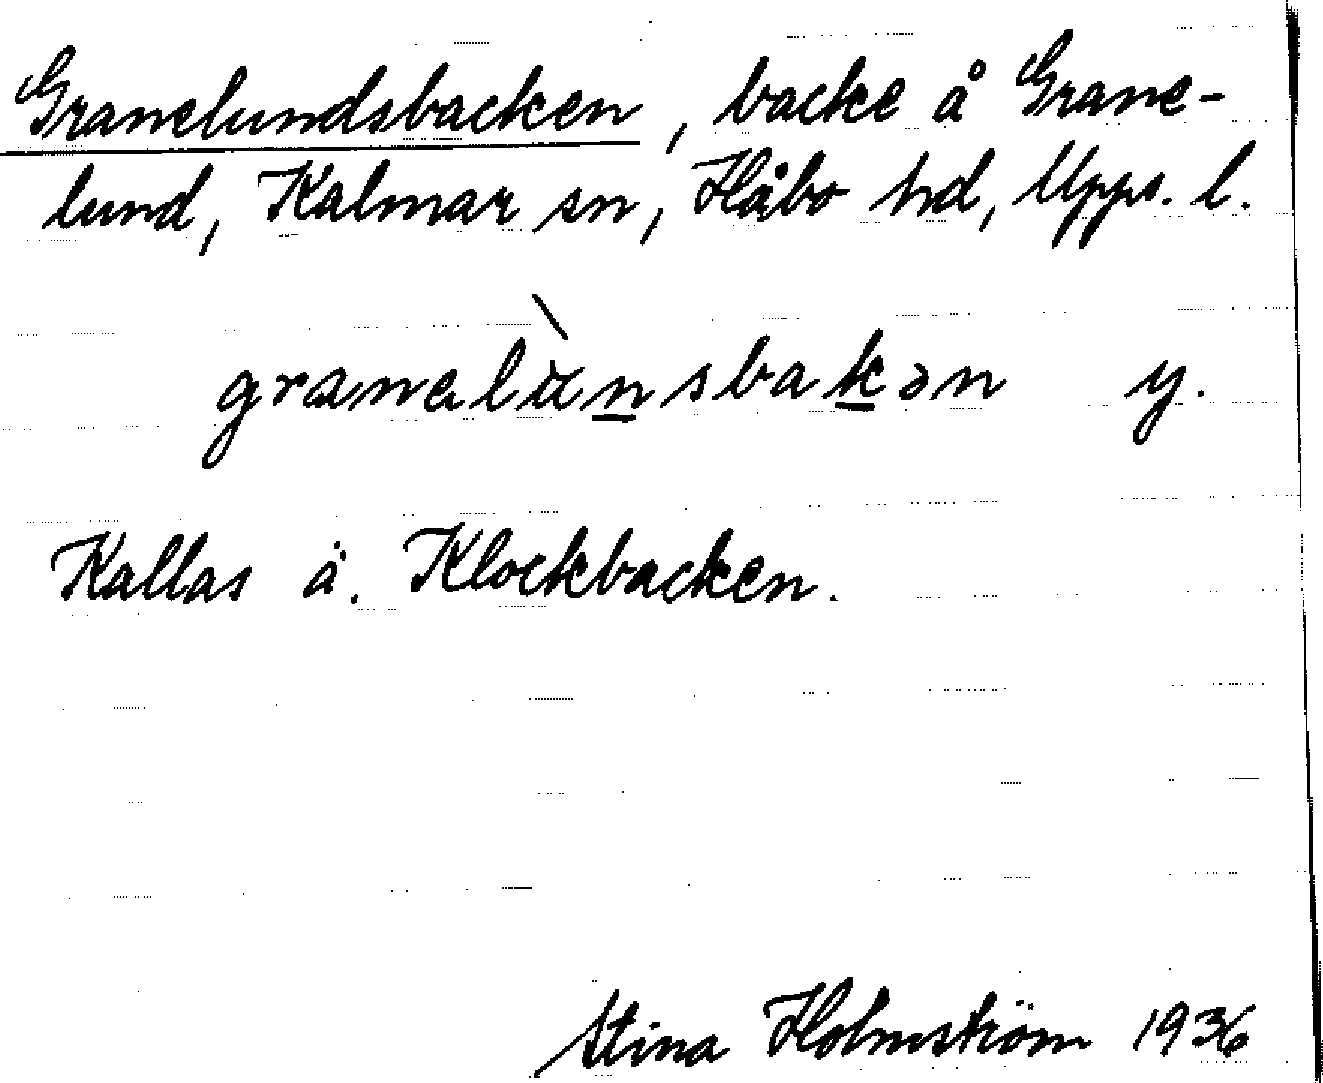 Granelundsbacken, backe å Grane-
lund, Kalmar sn, Håbo hd, Upps. l.
granəlùnsbakən y.
Kallas ä. Klockbacken.
Stina Holmström 1936